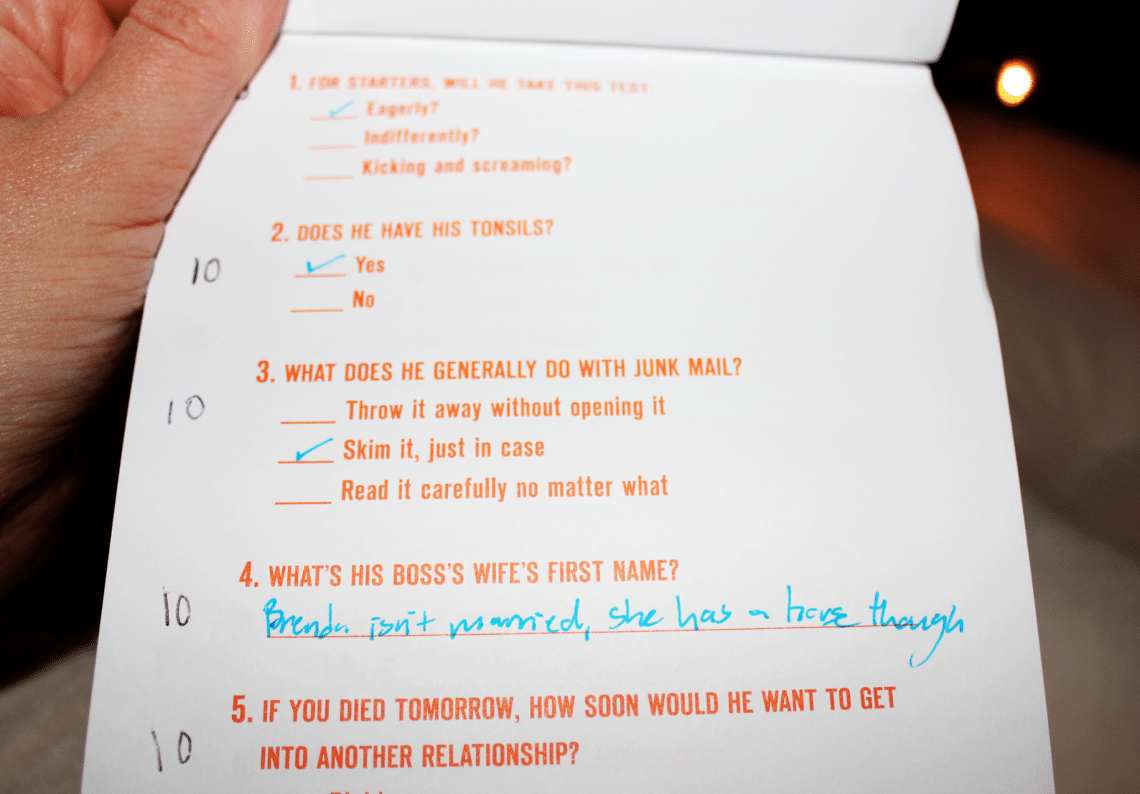 1. FOR STARTERS, WILL HE TAKE THIS TEST:
✓ Eagerly?
Indifferently?
Kicking and screaming?
2. DOES HE HAVE HIS TONSILS?
10 ✓ Yes
No
3. WHAT DOES HE GENERALLY DO WITH JUNK MAIL?
10 Throw it away without opening it
✓ Skim it, just in case
Read it carefully no matter what
4. WHAT'S HIS BOSS'S WIFE'S FIRST NAME?
10 Brenda isn't married, she has a horse though
5. IF YOU DIED TOMORROW, HOW SOON WOULD HE WANT TO GET
10 INTO ANOTHER RELATIONSHIP?